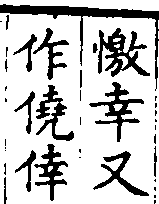 憿幸又
作僥倖